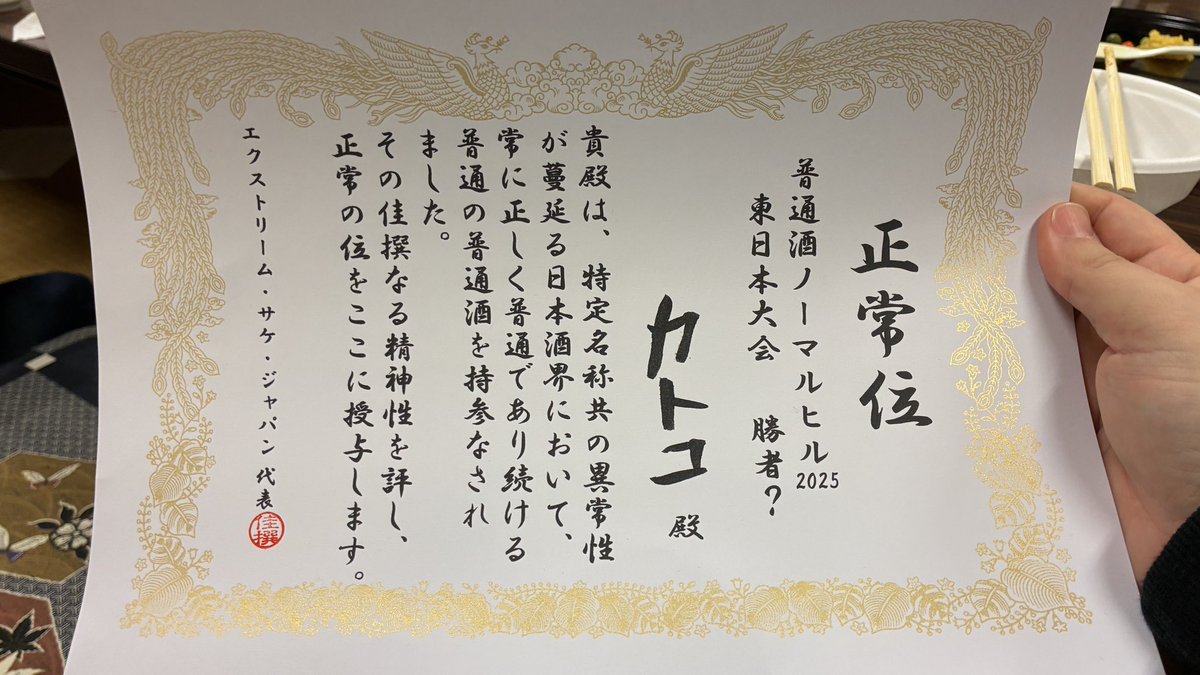 正常位
普通酒ノーマルヒル2025
東日本大会 勝者？
カトコ 殿
貴殿は、特定名称共の異常性
が蔓延る日本酒界において、
常に正しく普通であり続ける
普通の普通酒を持参なされ
ました。
その佳撰なる精神性を評し、
正常の位をここに授与します。
エクストリーム・サケ・ジャパン 代表
佳撰